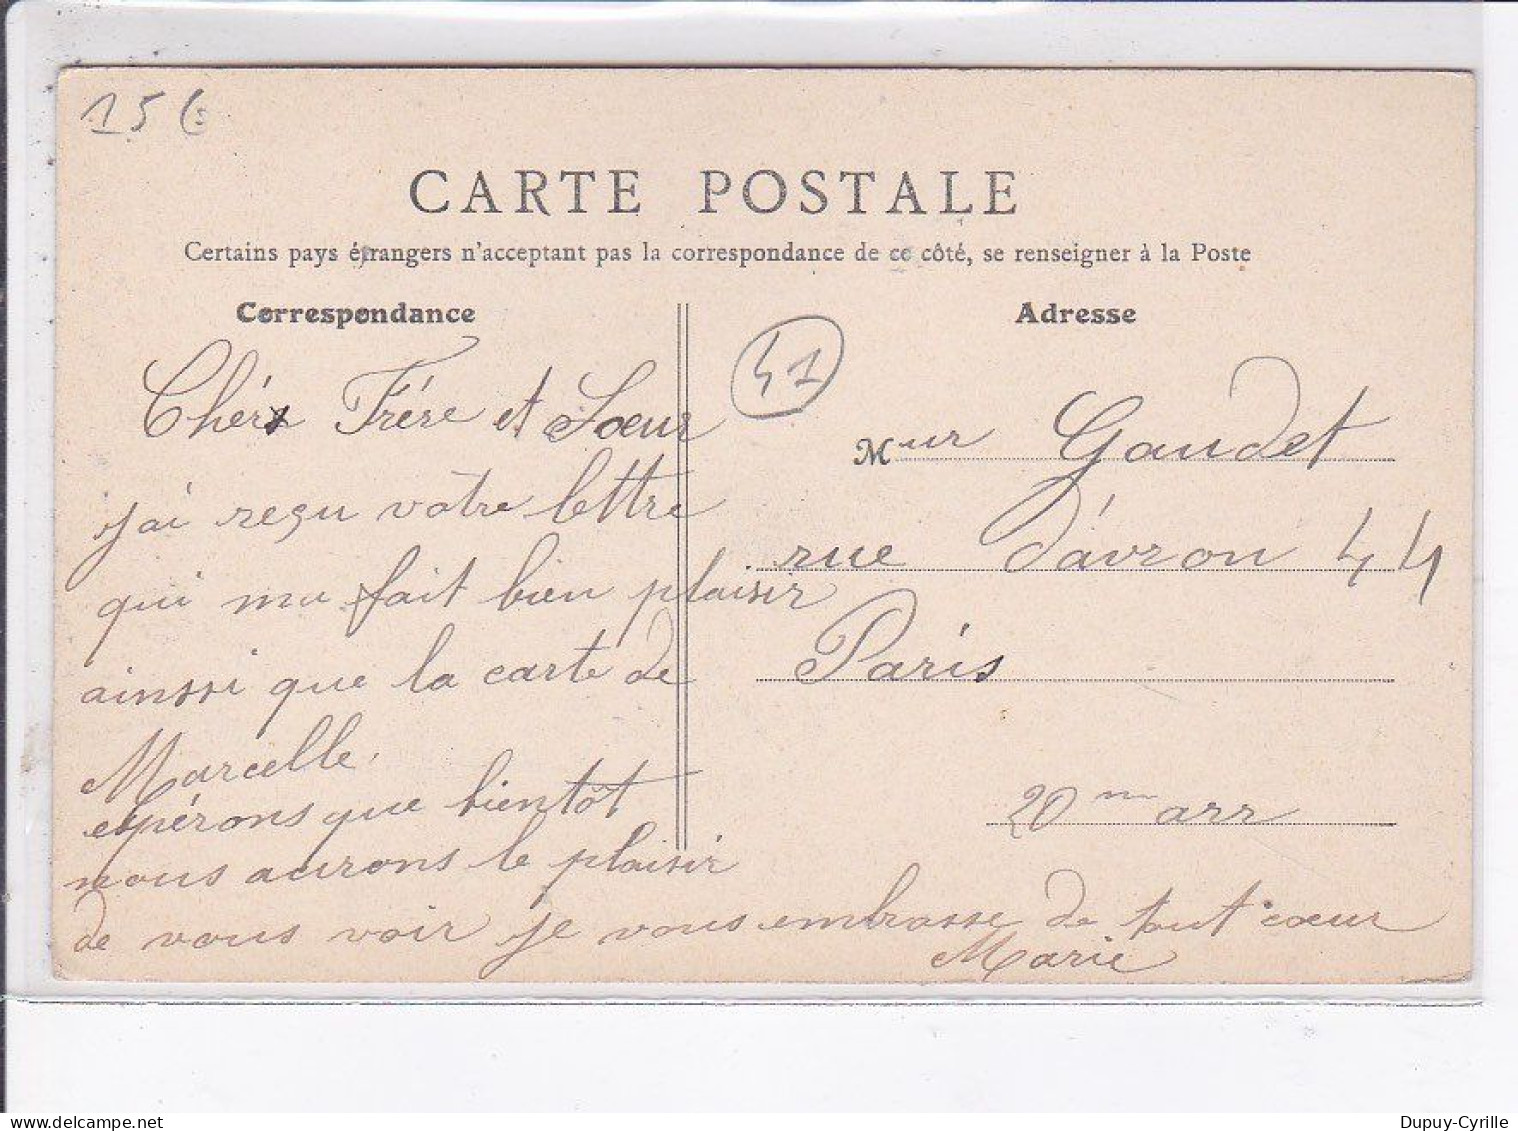 15 €
CARTE POSTALE
Certains pays étrangers n'acceptant pas la correspondance de ce côté, se renseigner à la Poste
Correspondance
Chérs Frére et Soeur
j'ai reçu votre lettre
qui ma fait bien plaisir
ainssi que la carte de
Marcelle.
espérons que bientôt
nous aurons le plaisir
de vous voir je vous embrasse de tout coeur
Marie
41
Adresse
Meur Gaudet
rue d'avron 44
Paris
20me arr
delcampe.net
Dupuy-Cyrille